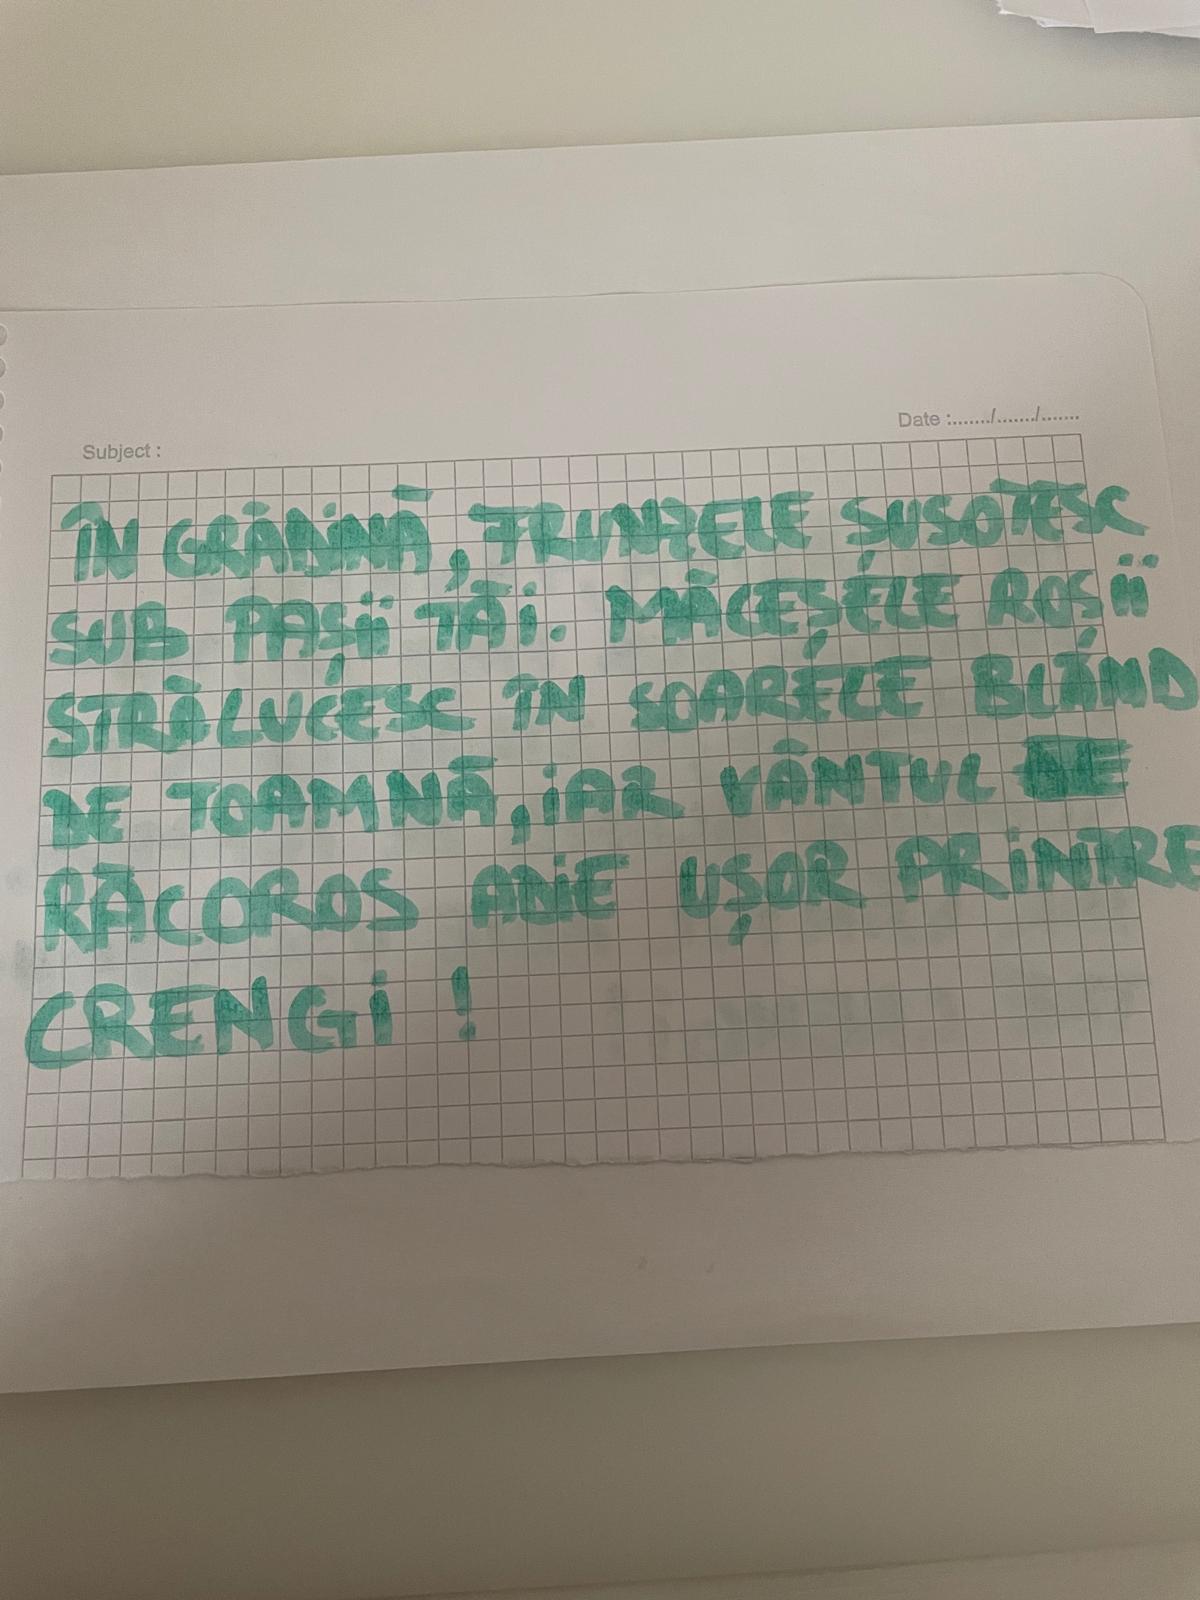 Subject :
Date :......../......./.......
ÎN GRĂDINĂ, FRUNZELE ȘUȘOTESC
SUB PAȘII TĂI. MĂCEȘELE ROȘII
STRĂLUCESC ÎN SOARELE BLÂND
DE TOAMNĂ, IAR VÂNTUL
RĂCOROS ADIE UȘOR PRINTRE
CRENGI !